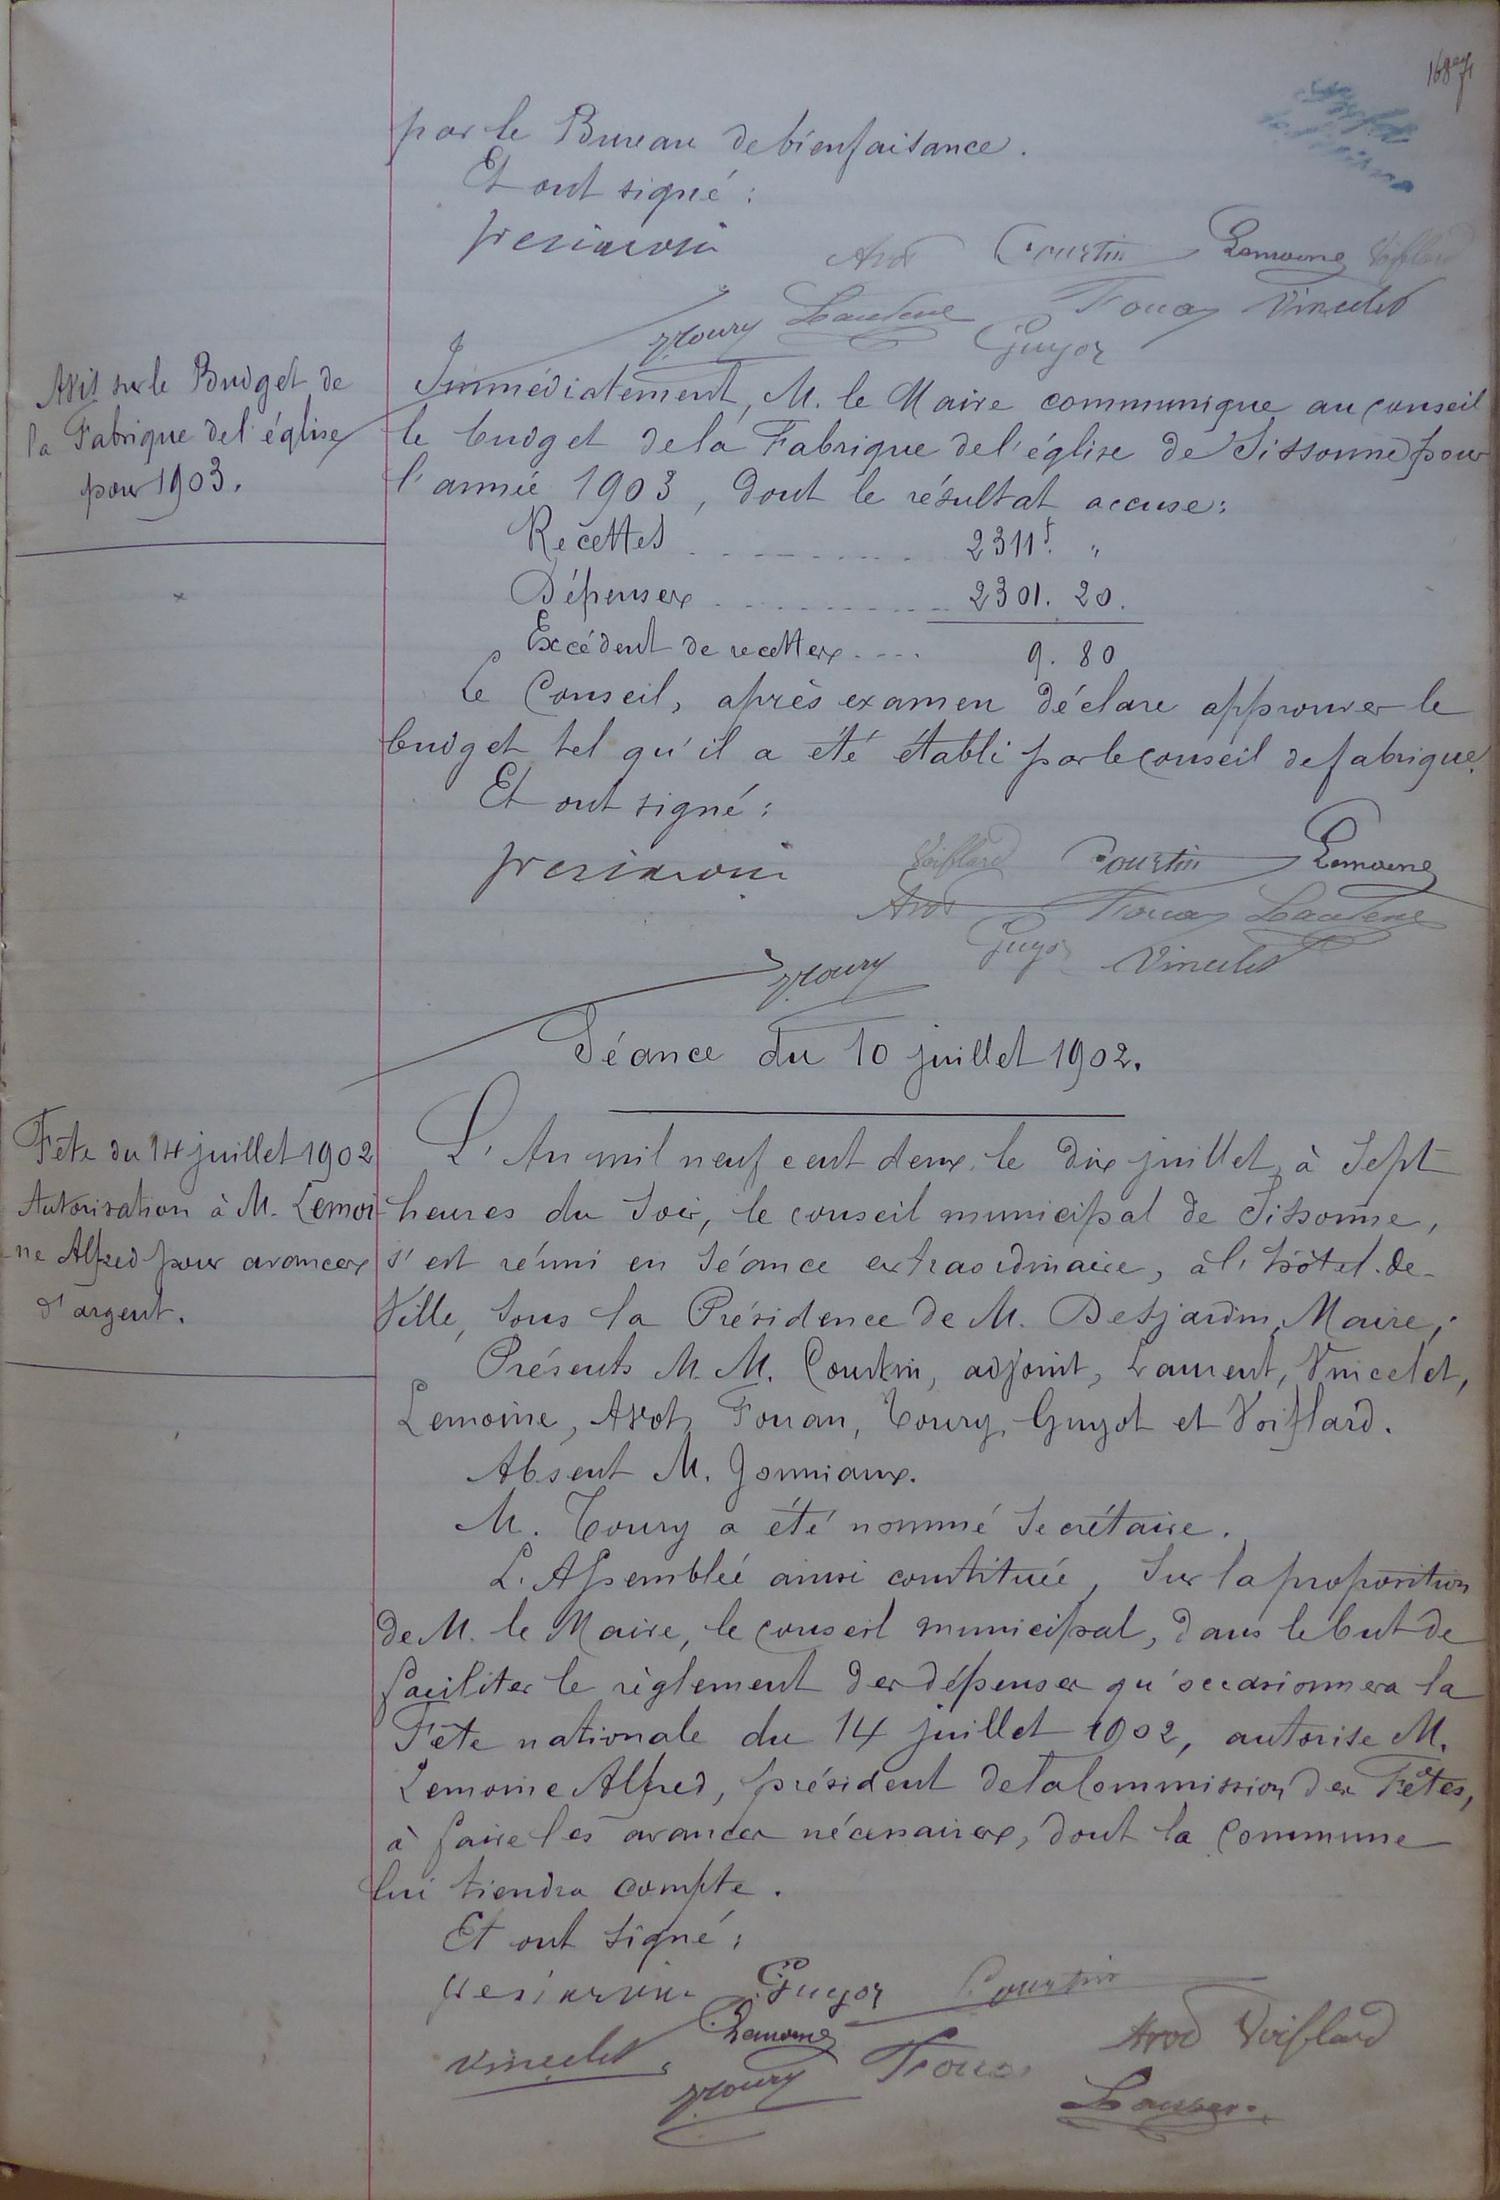 par le Bureau de bienfaisance.
Et ont signé :
Avot Courtin Lemoine Voiflard
Toury Fouan Vincelet
Guyot
Avis sur le Budget de
la Fabrique de l'église
pour 1903.
Immédiatement, M. le Maire communique au conseil
le budget de la Fabrique de l'église de Sissonne pour
l'année 1903, dont le résultat accuse :
Recettes ........ 2311f. "
Dépenses ........ 2301. 20.
Excédent de recettes .... 9. 80
Le Conseil, après examen déclare approuver le
budget tel qu'il a été établi par le conseil de fabrique.
Et ont signé :
Voiflard Courtin Lemoine
Avot Fouan
Toury Guyot Vincelet
Séance du 10 juillet 1902.
Fête du 14 juillet 1902
Autorisation à M. Lemoi-
-ne Alfred pour avances
d'argent.
L'An mil neuf cent deux, le dix juillet, à sept
heures du soir, le conseil municipal de Sissonne,
s'est réuni en séance extraordinaire, à l'hôtel-de-
Ville, sous la Présidence de M. Desjardin, Maire,
Présents M. M. Courtin, adjoint, Laurent, Vincelet,
Lemoine, Avot, Fouan, Toury, Guyot et Voiflard.
Absent M. Jonniaux.
M. Toury a été nommé secrétaire.
L'Assemblée ainsi constituée, sur la proposition
de M. le Maire, le conseil municipal, dans le but de
faciliter le règlement des dépenses qu'occasionnera la
Fête nationale du 14 juillet 1902, autorise M.
Lemoine Alfred, président de la Commission des Fêtes,
à faire les avances nécessaires, dont la Commune
lui tiendra compte.
Et ont signé :
Guyot Courtin
Vincelet Lemoine Avot Voiflard
Toury Fouan